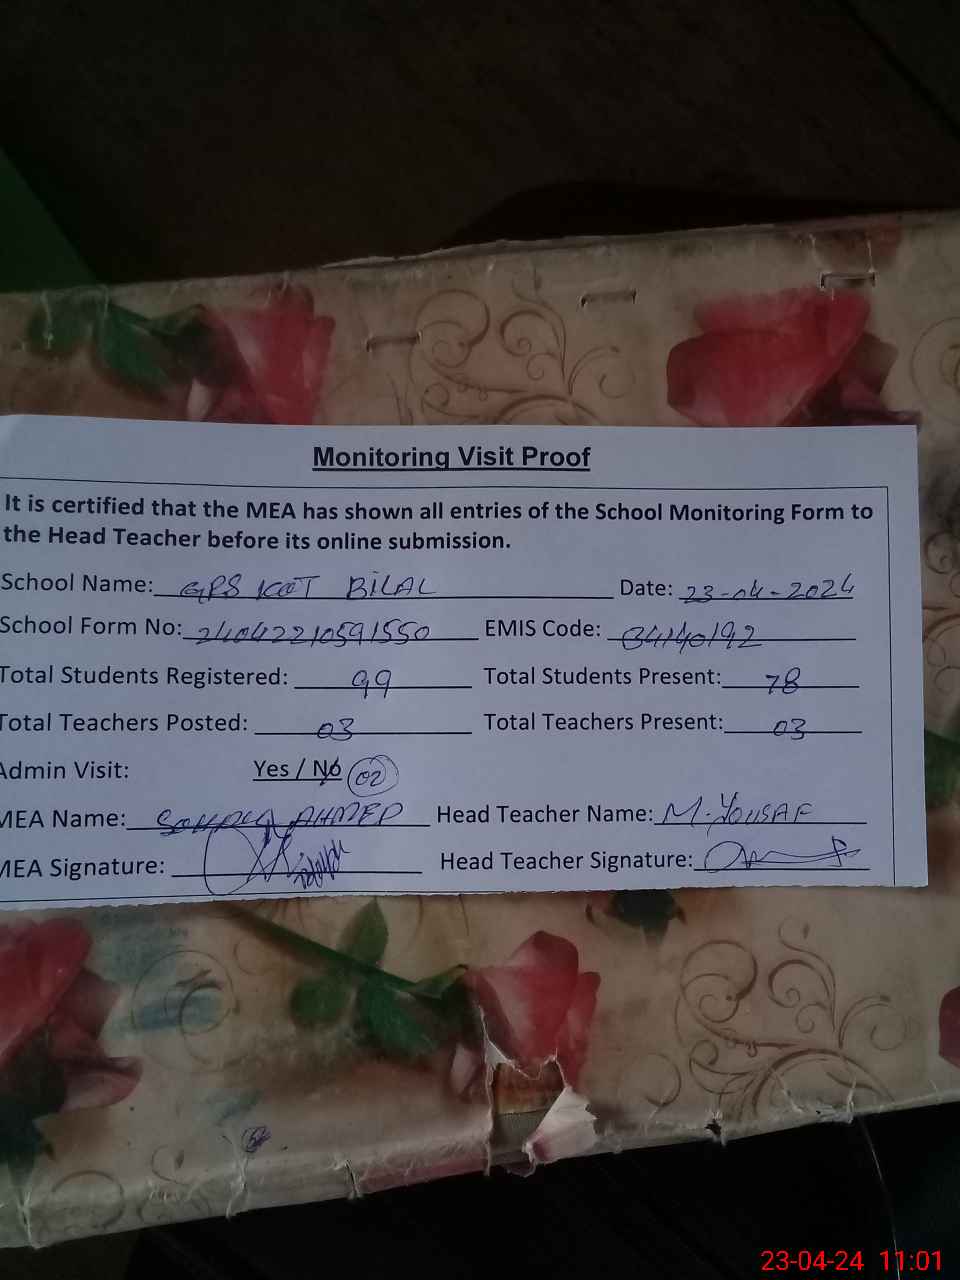 Monitoring Visit Proof
It is certified that the MEA has shown all entries of the School Monitoring Form to
the Head Teacher before its online submission.
School Name: GPS KOT BILAL Date: 23-04-2024
School Form No: 24042210591550 EMIS Code: 34140192
Total Students Registered: 99 Total Students Present: 78
Total Teachers Posted: 03 Total Teachers Present: 03
Admin Visit: Yes / No 02
MEA Name: AHMED Head Teacher Name: M. YOUSAF
MEA Signature: Head Teacher Signature:
23-04-24 11:01